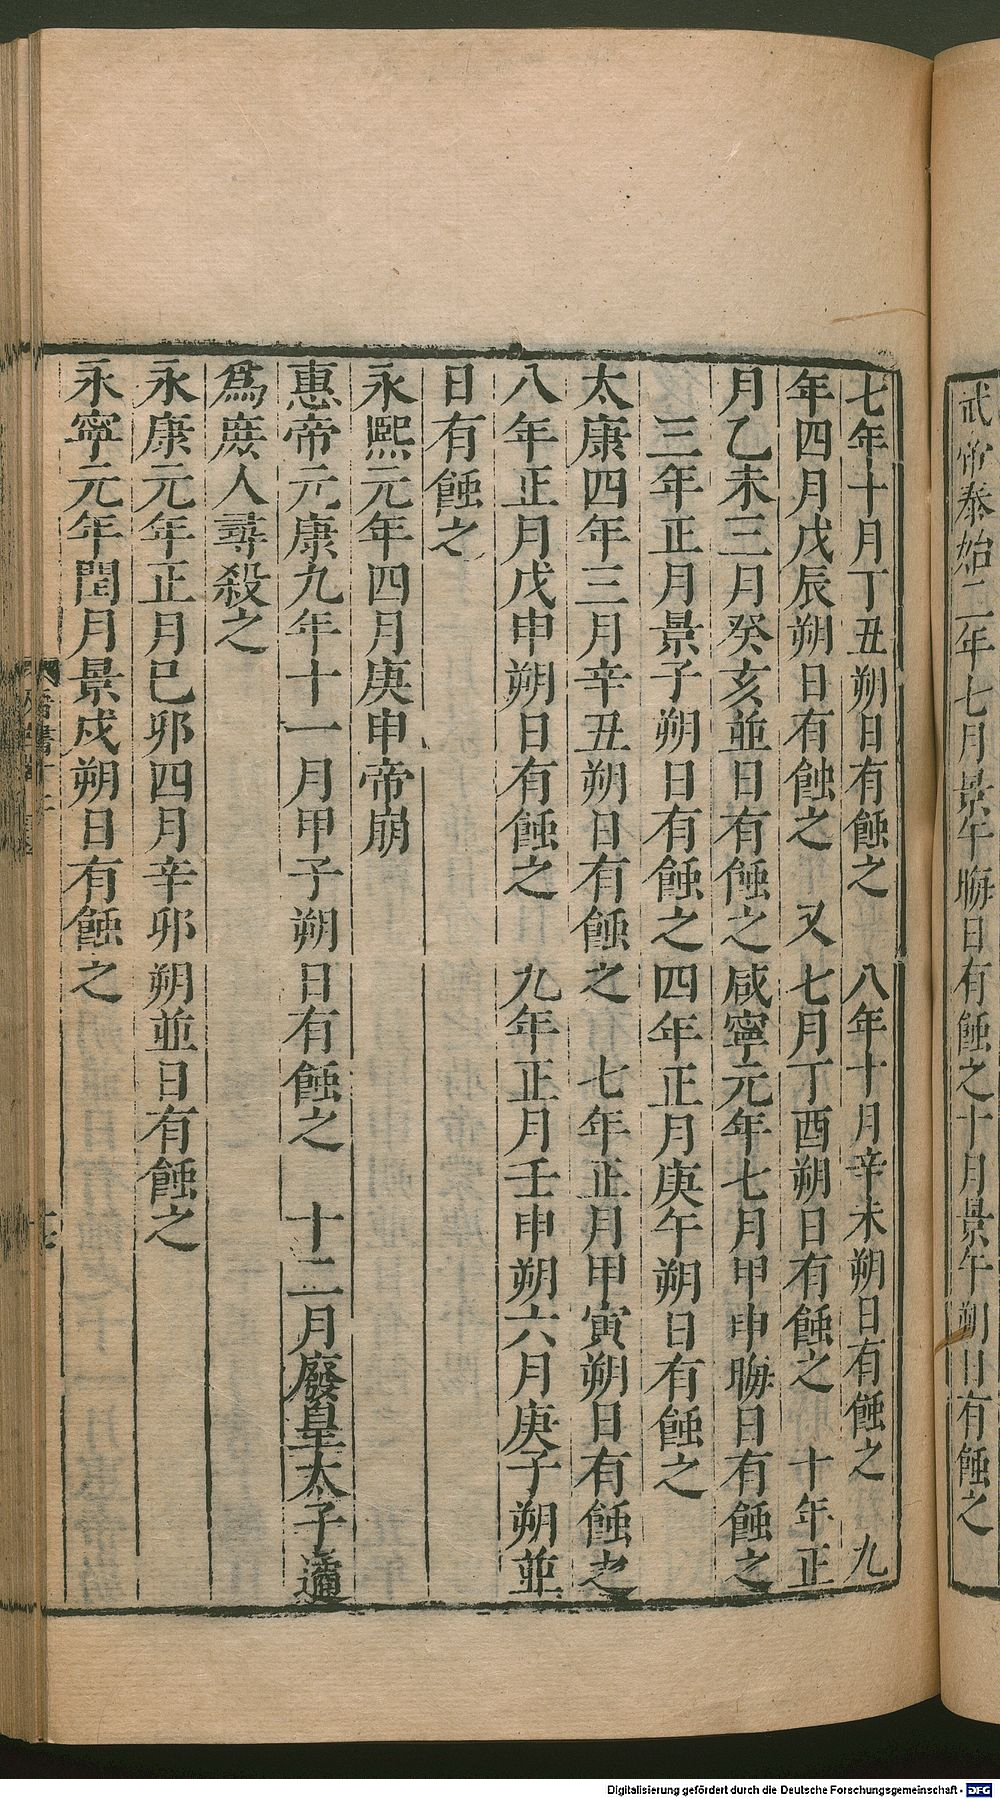 武帝泰始二年七月景午晦日有蝕之十月景午朔日有蝕之
七年十月丁丑朔日有蝕之　八年十月辛未朔日有蝕之　九
年四月戊辰朔日有蝕之　又七月丁酉朔日有蝕之　十年正
月乙未三月癸亥並日有蝕之咸寧元年七月甲申晦日有蝕之
三年正月景子朔日有蝕之四年正月庚午朔日有蝕之
太康四年三月辛丑朔日有蝕之　七年正月甲寅朔日有蝕之
八年正月戊申朔日有蝕之　九年正月壬申朔六月庚子朔並
日有蝕之
永熙元年四月庚申帝崩
惠帝元康九年十一月甲子朔日有蝕之　十二月廢皇太子遹
爲庶人尋殺之
永康元年正月巳卯四月辛卯朔並日有蝕之
永寧元年閏月景戍朔日有蝕之
Digitalisierung gefördert durch die Deutsche Forschungsgemeinschaft - DFG